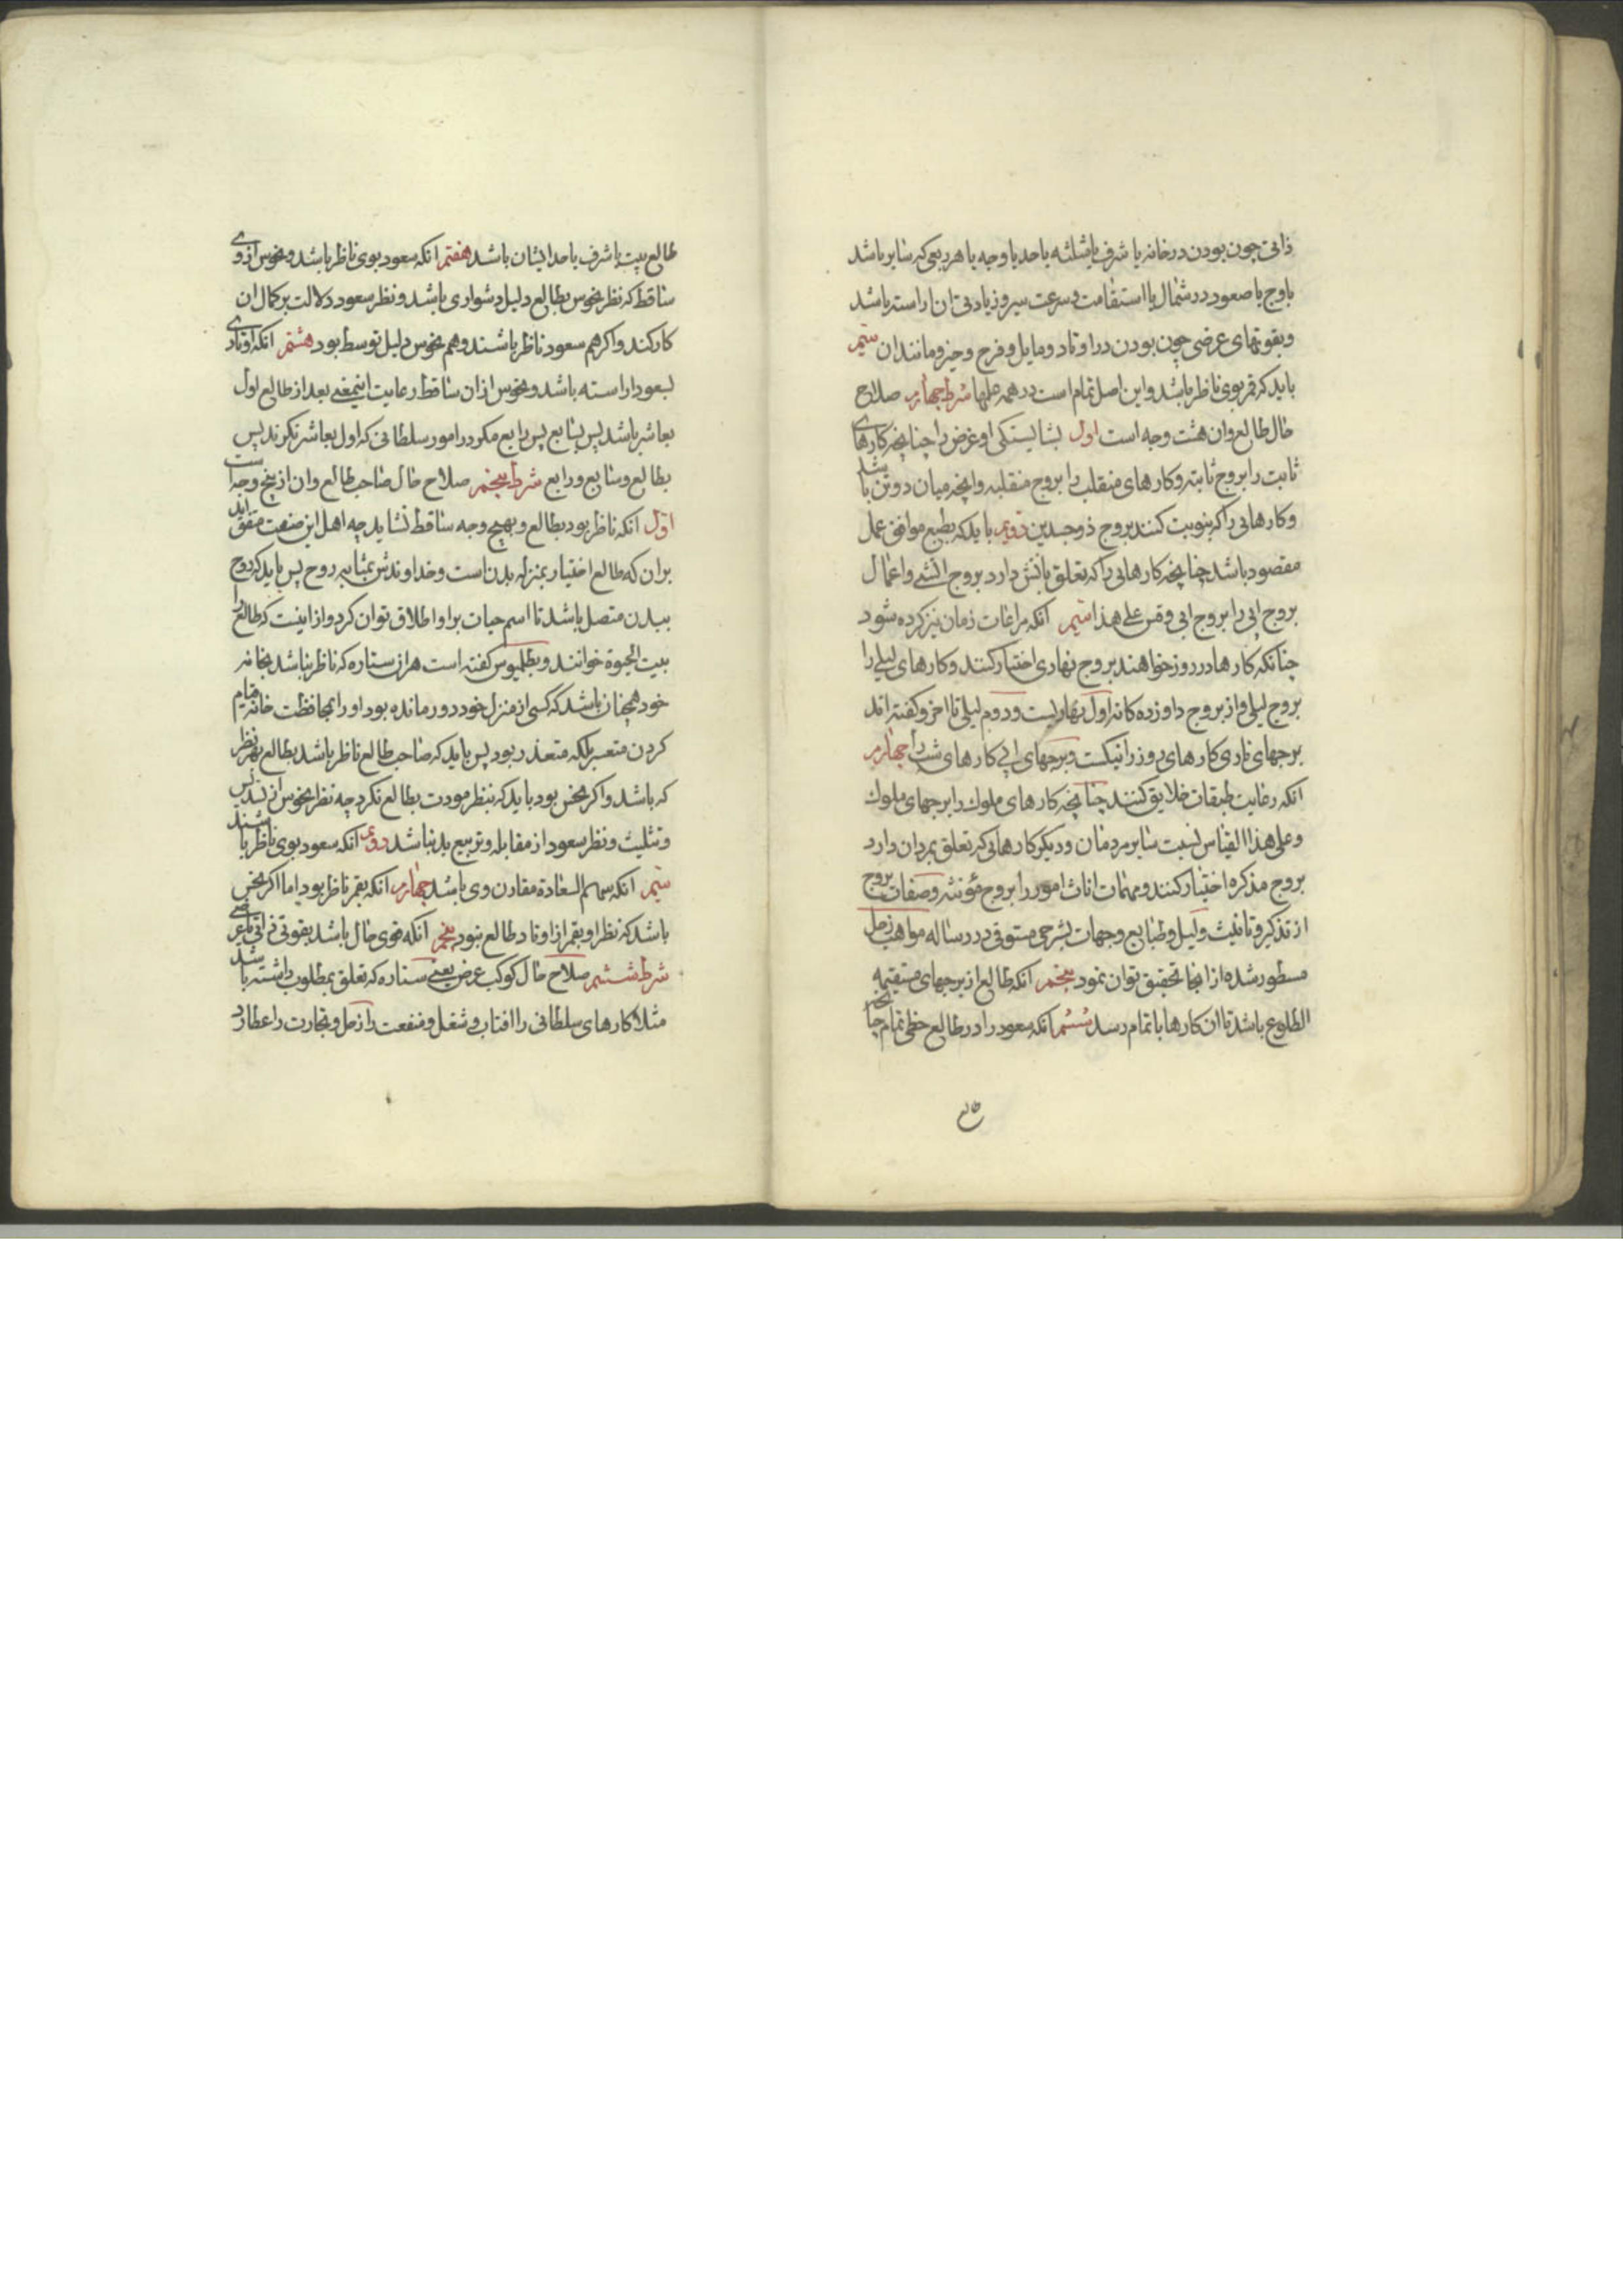 ذاتی چون بودن در خانه یا شرف یا مثلثه یا حد یا وجه یا هر برجی که سایر باشد
باوج یا صعود در شمال یا استقامت و سرعت سیر و زیادتی ان اراسته باشد
وبقوتهای عرضی چون بودن در اوتاد و مایل و فرح و حیز و مانند ان سیم
باید که قمر بوی ناظر باشد و این اصل تمام است در همه عملها شرط چهارم صلاح
حال طالع وان هشت وجه است اول بشایستگی او غرض را چنانچه کارهای
ثابت را بروج ثابته و کارهای منقلب را بروج منقلبه وانچه میان دو تن باشد
وکارهایی را که بنوبت کنند بروج ذوجسدین دویم باید که بطبع موافق عمل
مقصود باشد چنانچه کارهایی را که تعلق باتش دارد بروج اتشی واعمال
بروج ابی را بروج ابی وقس علی هذا سیم انکه مراعات زمان نیز کرده شود
چنانکه کارها در روز خواهند بروج نهاری اختیار کنند وکارهای لیلی را
بروج لیلی واز بروج داوزده کانه اول نهاریست ودوم لیلی تا اخر وکفته اند
برجهای ناری کارهای روز را نیکست وبرجهای ابی کارهای شب را چهارم
انکه رعایت طبقات خلایق کنند چنانچه کارهای ملوک را برجهای ملوک
وعلی هذا القیاس نسبت سایر مردمان ودیکر کارهایی که تعلق بمردان دارد
بروج مذکره اختیار کنند ومهمات اناث امور را بروج مؤنثه وصفات بروج
از تذکیر وتانیث ولیل وطبایع وجهات بشرحی مستوفی در رساله مواهب زحل
مسطور شده از انجا تحقیق توان نمود پنجم انکه طالع از برجهای مستقیمه
الطلوع باشد تا ان کارها باتمام رسد ششم انکه سعود را در طالع حظی تمام چنانچه
طالع
طالع بیت یا شرف یا حد ایشان باشد هفتم انکه سعود بوی ناظر باشد ونحوس از وی
ساقط که نظر نحوس بطالع دلیل دشواری باشد ونظر سعود دلالت بر کمال ان
کار کند واکر هم سعود ناظر باشند وهم نحوس دلیل توسط بود هشتم انکه اوتاد وی
بسعود اراسته باشد ونحوس از ان ساقط رعایت اینمعنی بعد از طالع اول
بعاشر باشد پس بسابع پس رابع مکر در امور سلطانی که اول بعاشر نکرند پس
بطالع وسابع ورابع شرط پنجم صلاح حال صاحب طالع وان از پنج وجه است
اول انکه ناظر بود بطالع وبهیچ وجه ساقط نشاید چه اهل این صنعت متفق اند
بران که طالع اختیار بمنزله بدن است وخداوندش بمثابه روح پس باید که روح
ببدن متصل باشد تا اسم حیات بر او اطلاق توان کرد واز اینست که طالع را
بیت الحیوة خوانند وبطلمیوس کفته است هر ان ستاره که ناظر نباشد بخانه
خود همچنان باشد که کسی از منزل خود دور مانده بود او را بمحافظت خانه قیام
کردن متعسر بلکه متعذر بود پس باید که صاحب طالع ناظر باشد بطالع بهر نظر
که باشد واکر نحس بود باید که بنظر مودت بطالع نکرد چه نظر نحوس از تسدیس
وتثلیث ونظر سعود از مقابله وتربیع بد نباشد دویم انکه سعود بوی ناظر باشند
سیم انکه سهم السعادة مقارن وی باشد چهارم انکه بقمر ناظر بود اما اکر نحس
باشد که نظر او بقمر از اوتاد طالع نبود پنجم انکه قوی حال باشد بقوتی ذاتی یا عرضی
شرط ششم صلاح حال کوکب عرض یعنی ستاره که تعلق بمطلوب داشته باشد
مثلا کارهای سلطانی را افتاب وشغل ومنفعت را زحل وتجارت را عطارد